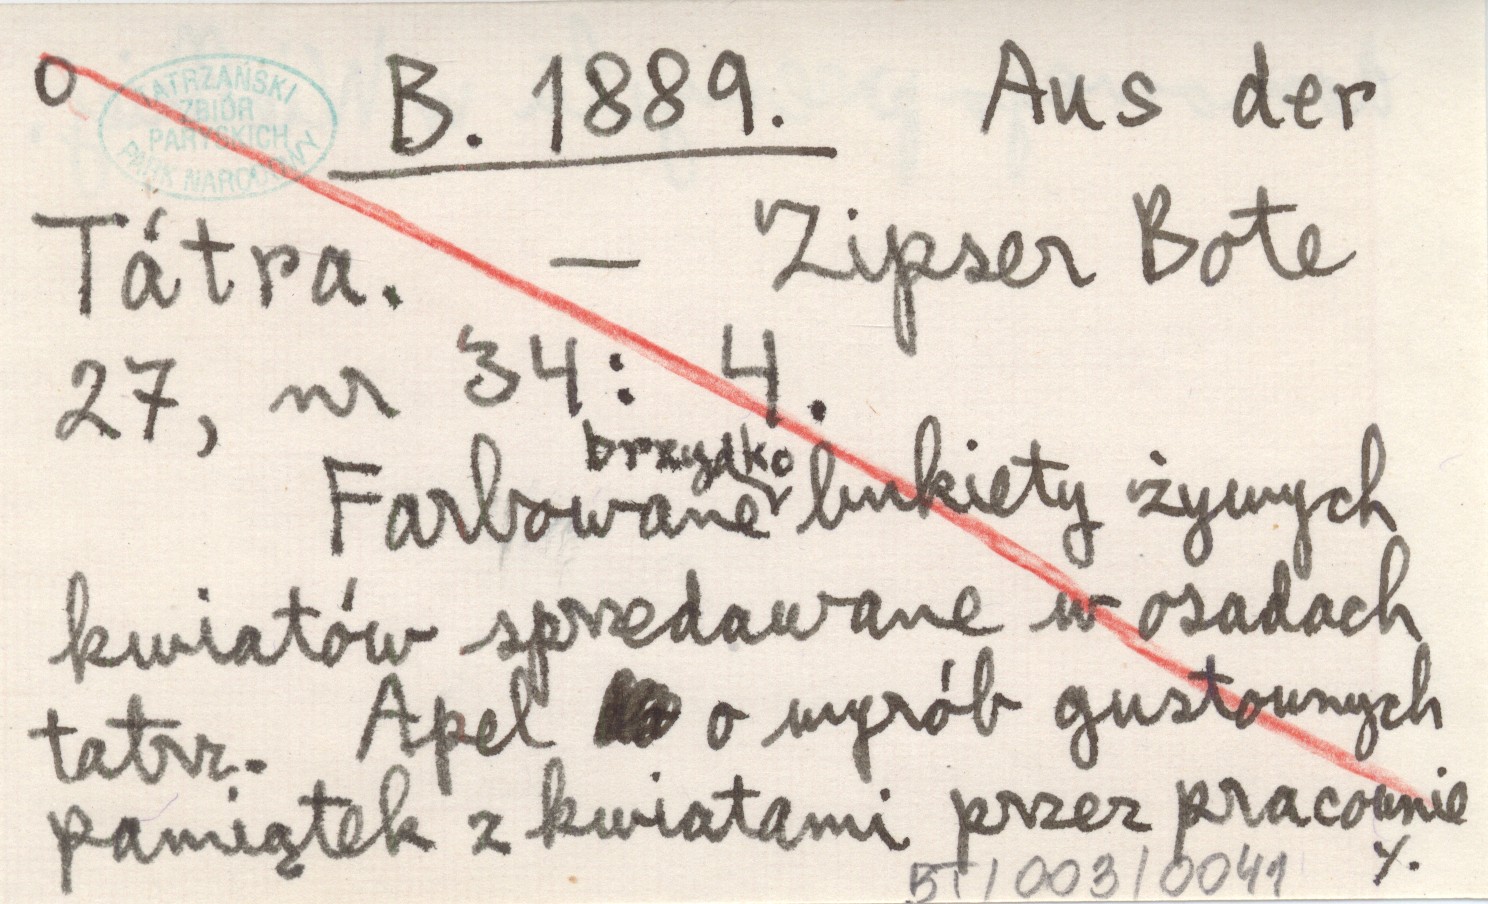 O B. 1889. Aus der
TATRZAŃSKI
ZBIÓR
PARYSKICH
PARK NARODOWY
Tátra. — Zipser Bote
27, nr 34: 4.
brzydko
Farbowane bukiety żywych
kwiatów sprzedawane w osadach
tatrz. Apel o wyrób gustownych
pamiątek z kwiatami przez pracownie
51/003/0041 ⁒.